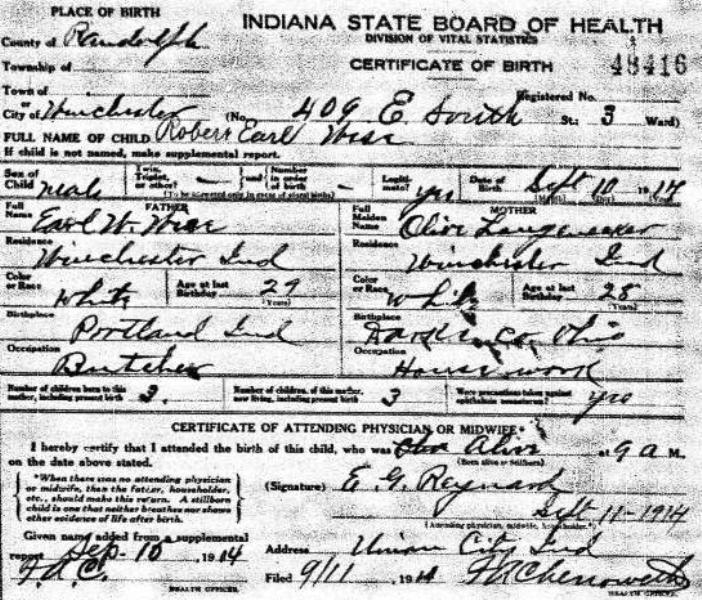 PLACE OF BIRTH
INDIANA STATE BOARD OF HEALTH
DIVISION OF VITAL STATISTICS
County of Randolph
CERTIFICATE OF BIRTH
48416
Township of
Registered No.
Town of
or
City of Winchester (No. 409 E. South St.; 3 Ward)
FULL NAME OF CHILD Robert Earl Wise
If child is not named, make supplemental report.
Sex of Child male Twin, Triplet, or other? — and Number in order of birth — Legitimate? yes Date of Birth Sept 10 1914
(To be answered only in event of plural births) (Month) (Day) (Year)
FATHER MOTHER
Full Name Earl W. Wise Full Maiden Name Olive
Residence Winchester Ind Residence Winchester Ind
Color or Race White Age at last Birthday 29 (Years) Color or Race White Age at last Birthday 28 (Years)
Birthplace Portland Ind Birthplace Darke Co. Ohio
Occupation Butcher Occupation House work
Number of children born to this mother, including present birth 3. Number of children, of this mother, now living, including present birth 3 Were precautions taken against ophthalmia neonatorum? yes
CERTIFICATE OF ATTENDING PHYSICIAN OR MIDWIFE*
I hereby certify that I attended the birth of this child, who was Alive at 9 a M.,
on the date above stated. (Born alive or Stillborn)
*When there was no attending physician
or midwife, then the father, householder,
etc., should make this return. A stillborn
child is one that neither breathes nor shows
other evidence of life after birth.
(Signature) E. G. Reynard
Sept 11-1914
(Attending physician, midwife, householder.*)
Given name added from a supplemental
report Sep-10, 1914
F.A.C.
HEALTH OFFICER.
Address Union City Ind
Filed 9/11, 1914 FA Chenoweth
HEALTH OFFICER.